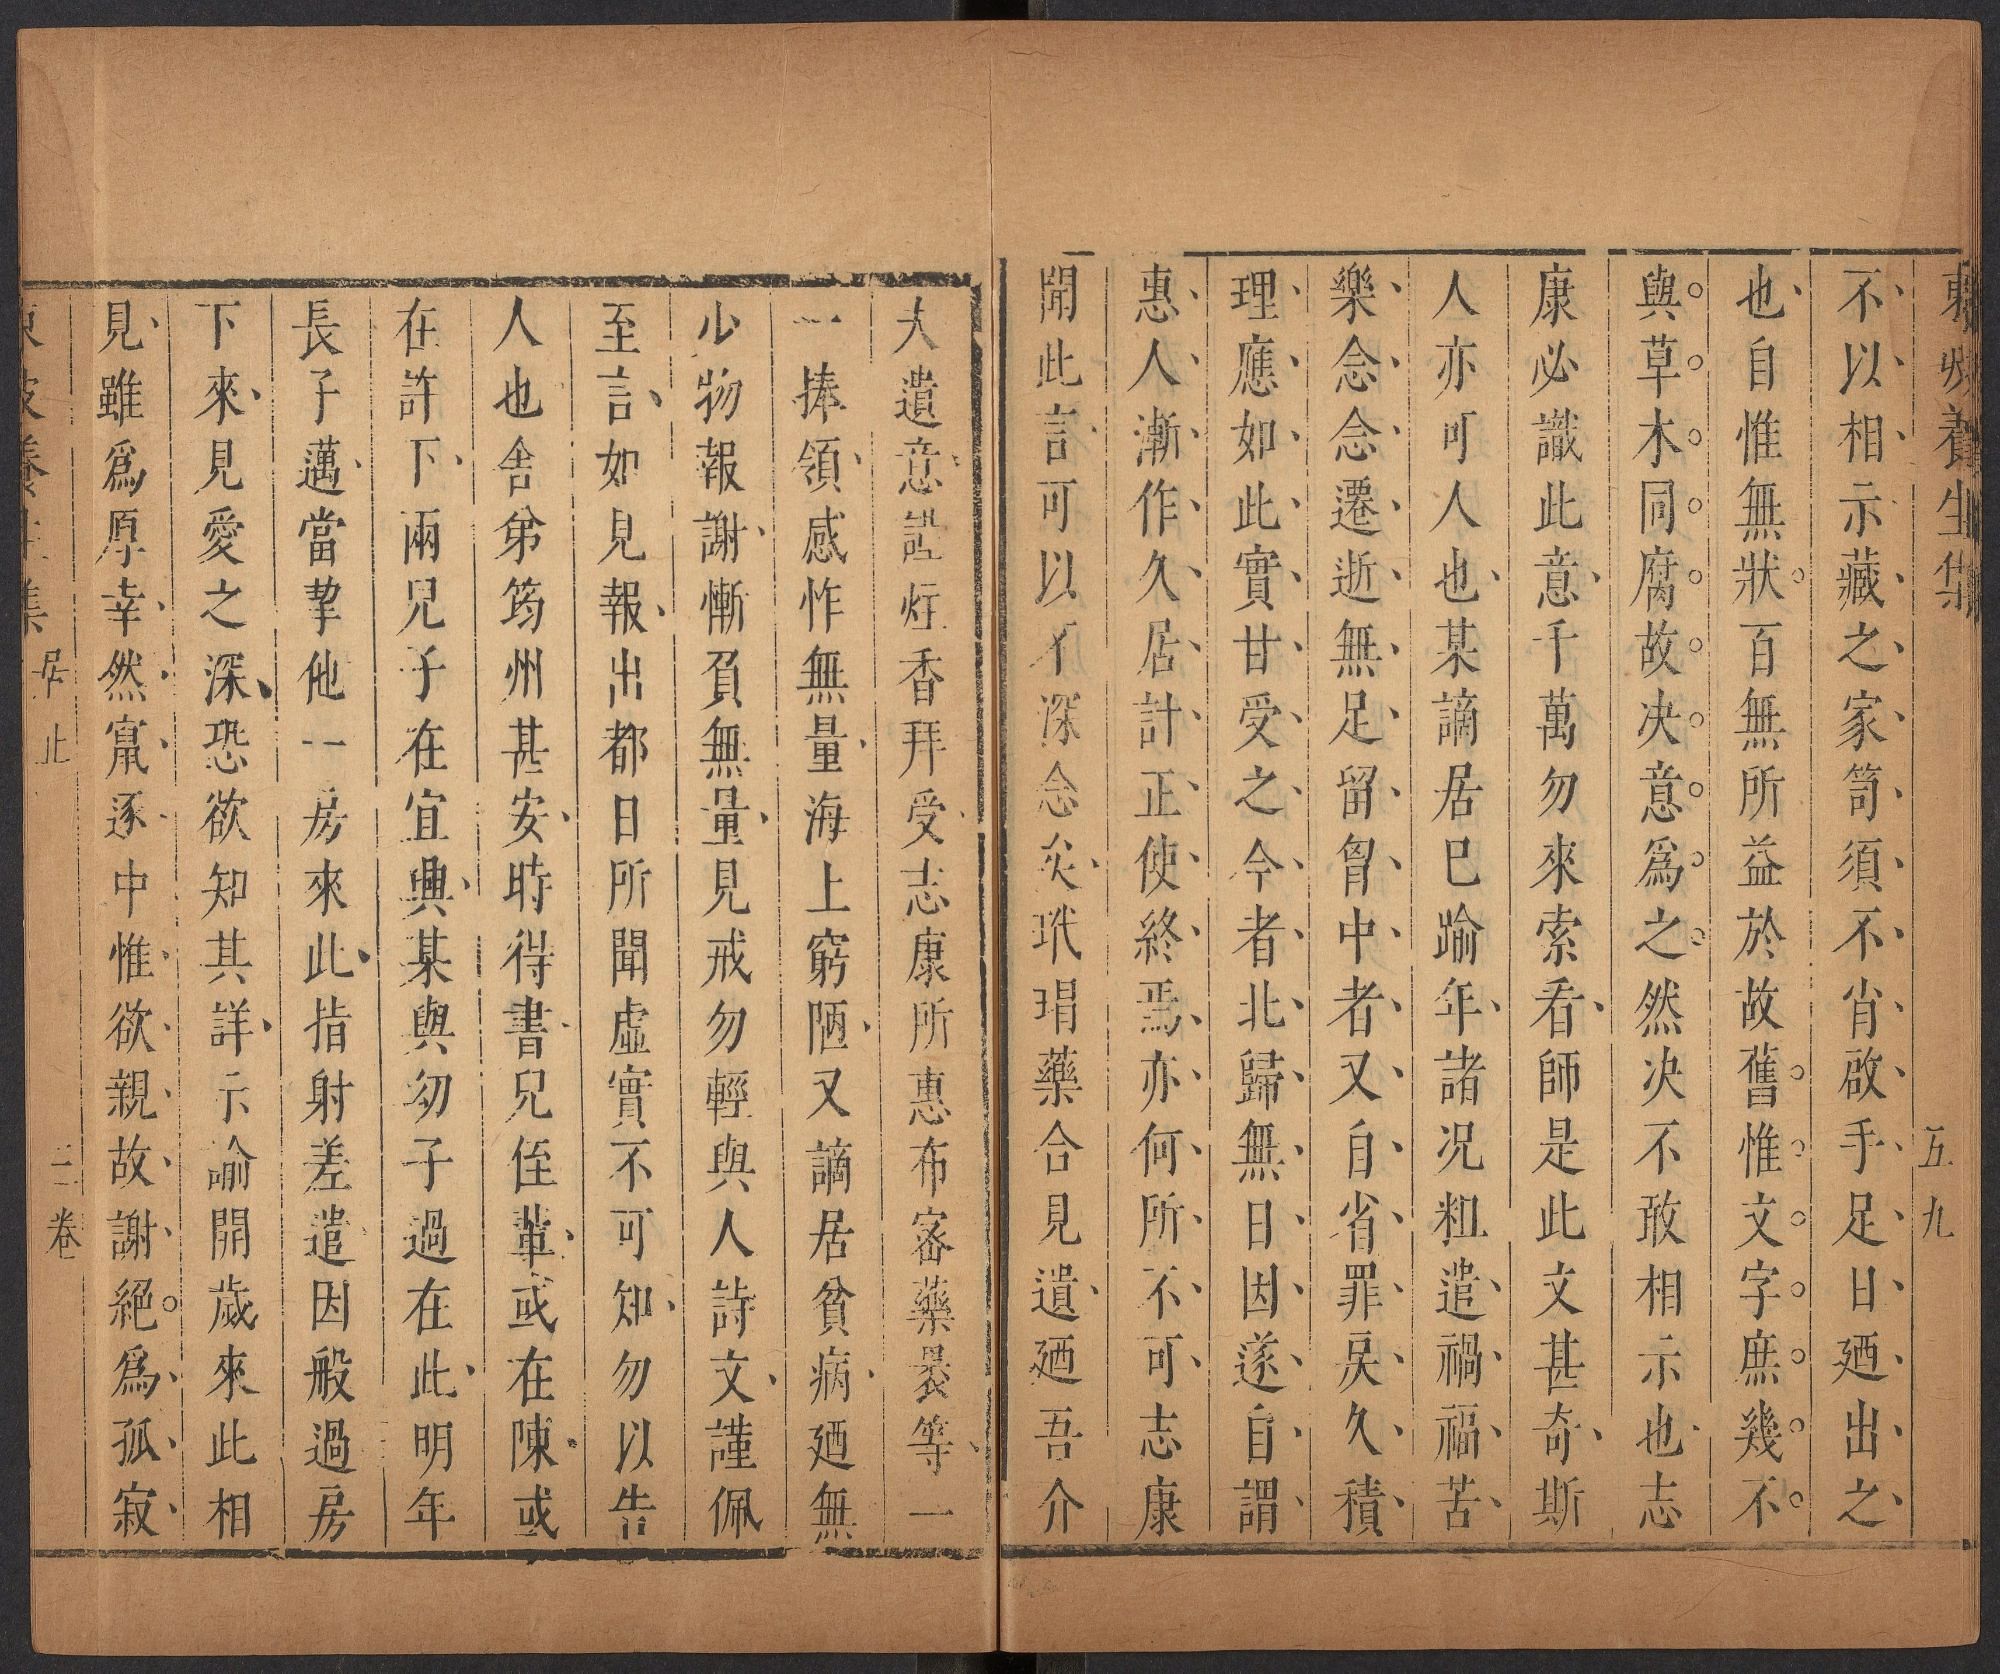 東坡養生集 五九
不以相示藏之家笥須不肖啟手足日廼出之
也自惟無狀百無所益於故舊惟文字庶幾不
與草木同腐故决意爲之然决不敢相示也志
康必識此意千萬勿來索看師是此文甚奇斯
人亦可人也某謫居巳踰年諸况粗遣禍福苦
樂念念遷逝無足留胷中者又自省罪戾久積
理應如此實甘受之今者北歸無日因遂自謂
惠人漸作久居計正使終焉亦何所不可志康
聞此言可以不深念矣玳瑁藥合見遺廼吾介
夫遺意謹炷香拜受志康所惠布審藥曇等一
一捧領感怍無量海上窮陋又謫居貧病廼無
少物報謝慚負無量見戒勿輕與人詩文謹佩
至言如見報出都日所聞虛實不可知勿以告
人也舍弟筠州甚安時得書兒侄輩或在陳或
在許下兩兒子在宜興某與㓜子過在此明年
長子邁當挈他一房來此指射差遣因般過房
下來見愛之深恐欲知其詳示諭開歲來此相
見雖爲厚幸然竄逐中惟欲親故謝絕爲孤寂
東坡養生集 居止 二卷